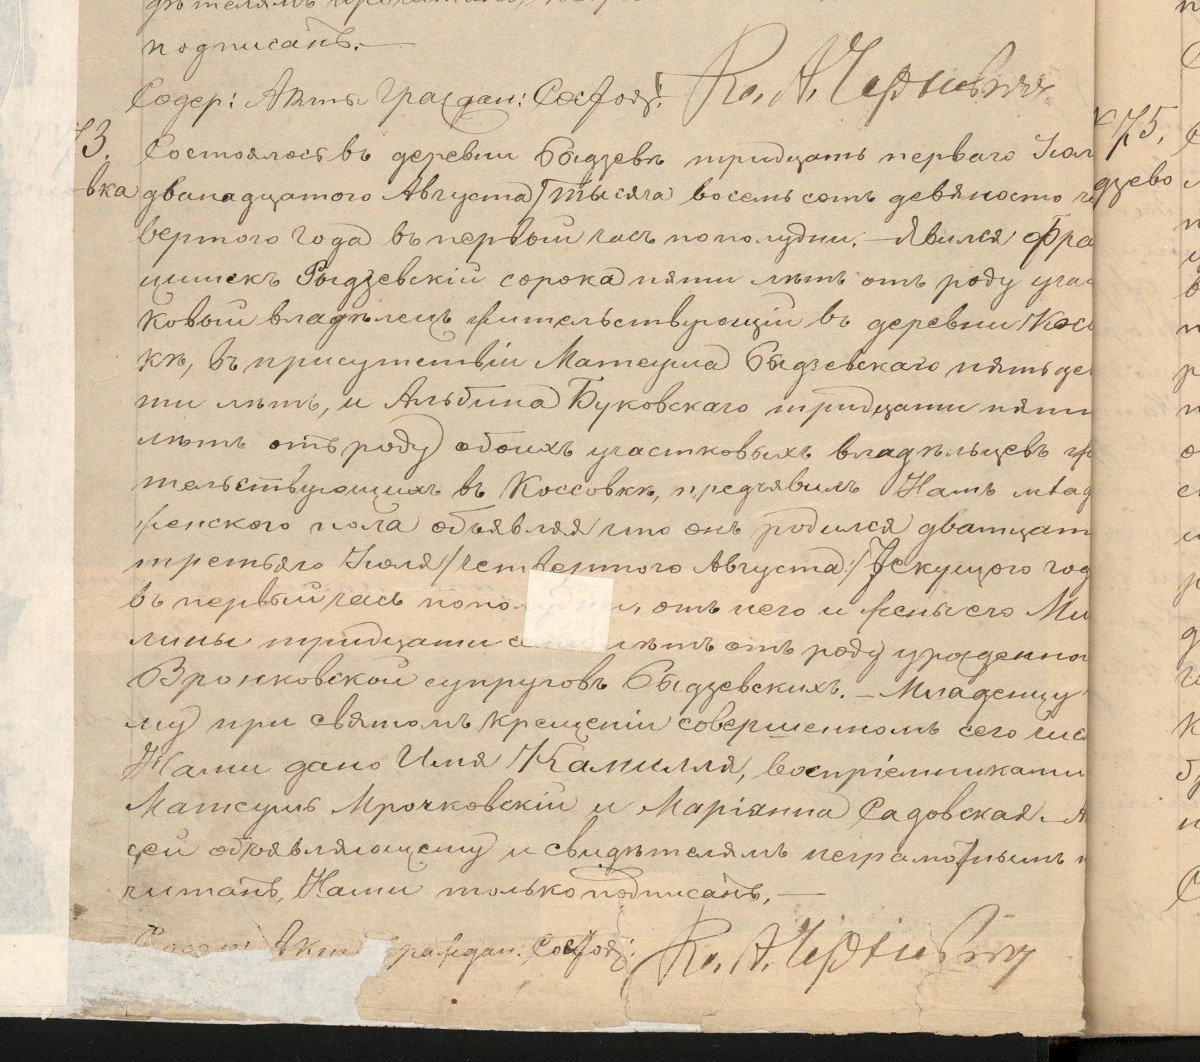 подписанъ.—
Содер: Акты Граждан: Состоя: Кс. А. Чернѣвичъ
73. Состоялось въ деревни Быдзевѣ тридцать перваго Іюл
вка дванадцатого Августа/ тысяча восемьсотъ девяносто че
вертого года въ первый часъ пополудни. — Явился Фра
цишекъ Быдзевскій сорока пяти лѣтъ отъ роду учас
ковый владѣлецъ жительствующій въ деревни Косс
кѣ, въ присутствіи Матеуша Быдзевскаго пятьдес
ти лѣтъ, и Альбина Буковскаго тридцати пяти
лѣтъ отъ роду обоихъ участковыхъ владѣльцевъ ж
тельствующихъ въ Коссовкѣ, предъявилъ Намъ млад
женского пола объявляя что онъ родился дватцат
третьяго Іюля/ четвертого Августа/ текущого год
въ первый часъ отъ него и жены его
лины тридцати лѣтъ отъ роду урожденно
Вронковской супруговъ Быдзевскихъ. — Младенцу
му при святомъ крещеніи совершенномъ сего чис
Нами дано Имя Камилля, воспріемниками
Матеушъ Мрочковскій и Маріянна Садовская. — А
сей объявляющему и свидѣтелямъ неграмотнымъ
читанъ, Нами только подписанъ, —
Акт Граждан: Состоя: Кс. А. Чернѣвичъ
№ 75.
дзево